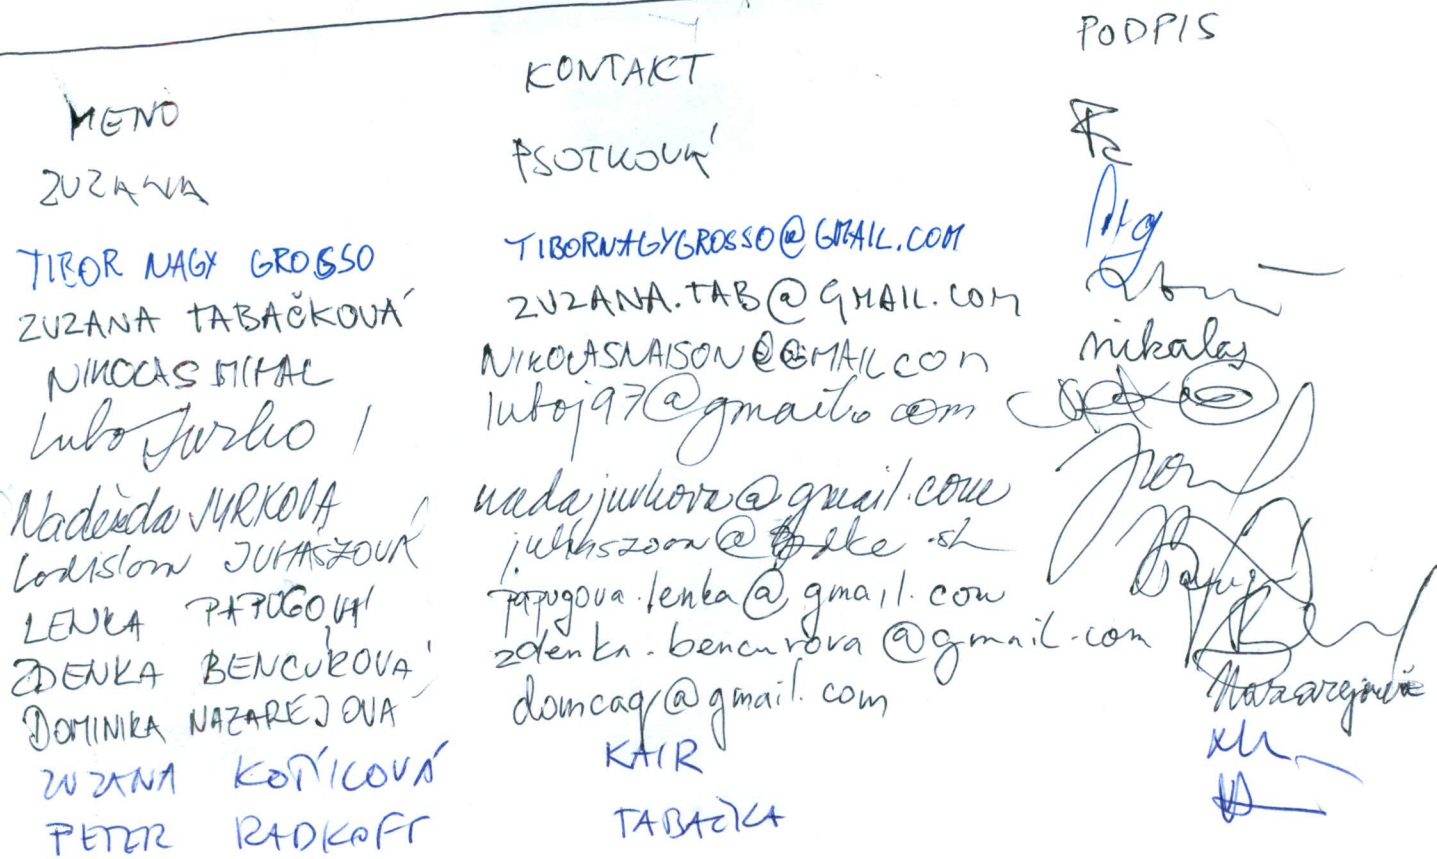 MENO KONTAKT PODPIS
ZUZANA PSOTKOVÁ
TIBOR NAGY GROSSO TIBORNAGYGROSSO@GMAIL.COM
ZUZANA TABAČKOVÁ ZUZANA.TAB@GMAIL.COM
NIKOLAS MIHAL NIKOLASNAISON@GMAIL.COM nikolas
Lubo Jurko luboj97@gmail.com
Nadežda JURKOVÁ nadajurkova@gmail.com
JUHÁSZOVÁ
LENKA PAPUGOVÁ papugova.lenka@gmail.com
ZDENKA BENCUROVÁ zdenka.bencurova@gmail.com
DOMINIKA NAZAREJOVÁ domcaq@gmail.com Nazarejová
ZUZANA KOTÍCOVÁ KAIR
PETER RADKOFF TABAČKA